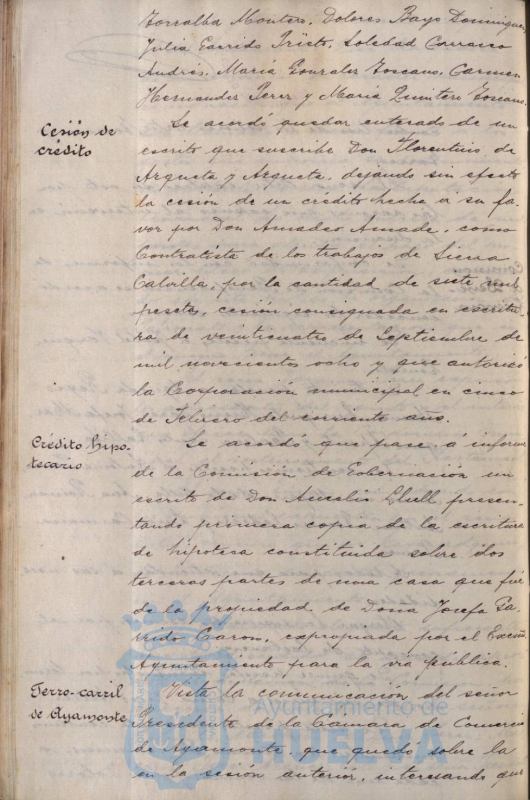 Torralba Montero, Dolores Bayo Dominguez,
Julia Garrido Prieto, Soledad Carrasco
Andrés, María Gonzalez Toscano, Carmen
Hernandez Perez y María Quintero Toscano.
Cesión de
crédito
Se acordó quedar enterado de un
escrito que suscribe Don Florentino de
Azqueta y Azqueta, dejando sin efecto
la cesión de un crédito hecha á su fa-
vor por Don Amadeo Amade, como
Contratista de los trabajos de Sierra
Calvilla, por la cantidad de siete mil
pesetas, cesión consignada en escritu-
ra de veinticuatro de Septiembre de
mil novecientos ocho y que autorizó
la Corporación municipal en cinco
de Febrero del corriente año.
Crédito hipo-
tecario
Se acordó que pase á informe
de la Comisión de Gobernación un
escrito de Don Aurelio Lluell presen-
tando primera copia de la escritura
de hipoteca constituida sobre dos
terceras partes de una casa que fué
de la propiedad de Doña Josefa Ga-
rrido Caron, expropiada por el Excmo.
Ayuntamiento para la via pública.
Ferro-carril
de Ayamonte
Vista la comunicación del señor
Presidente de la Cámara de Comercio
de Ayamonte, que quedó sobre la
en la sesión anterior, interesando que
Ayuntamiento de
HUELVA